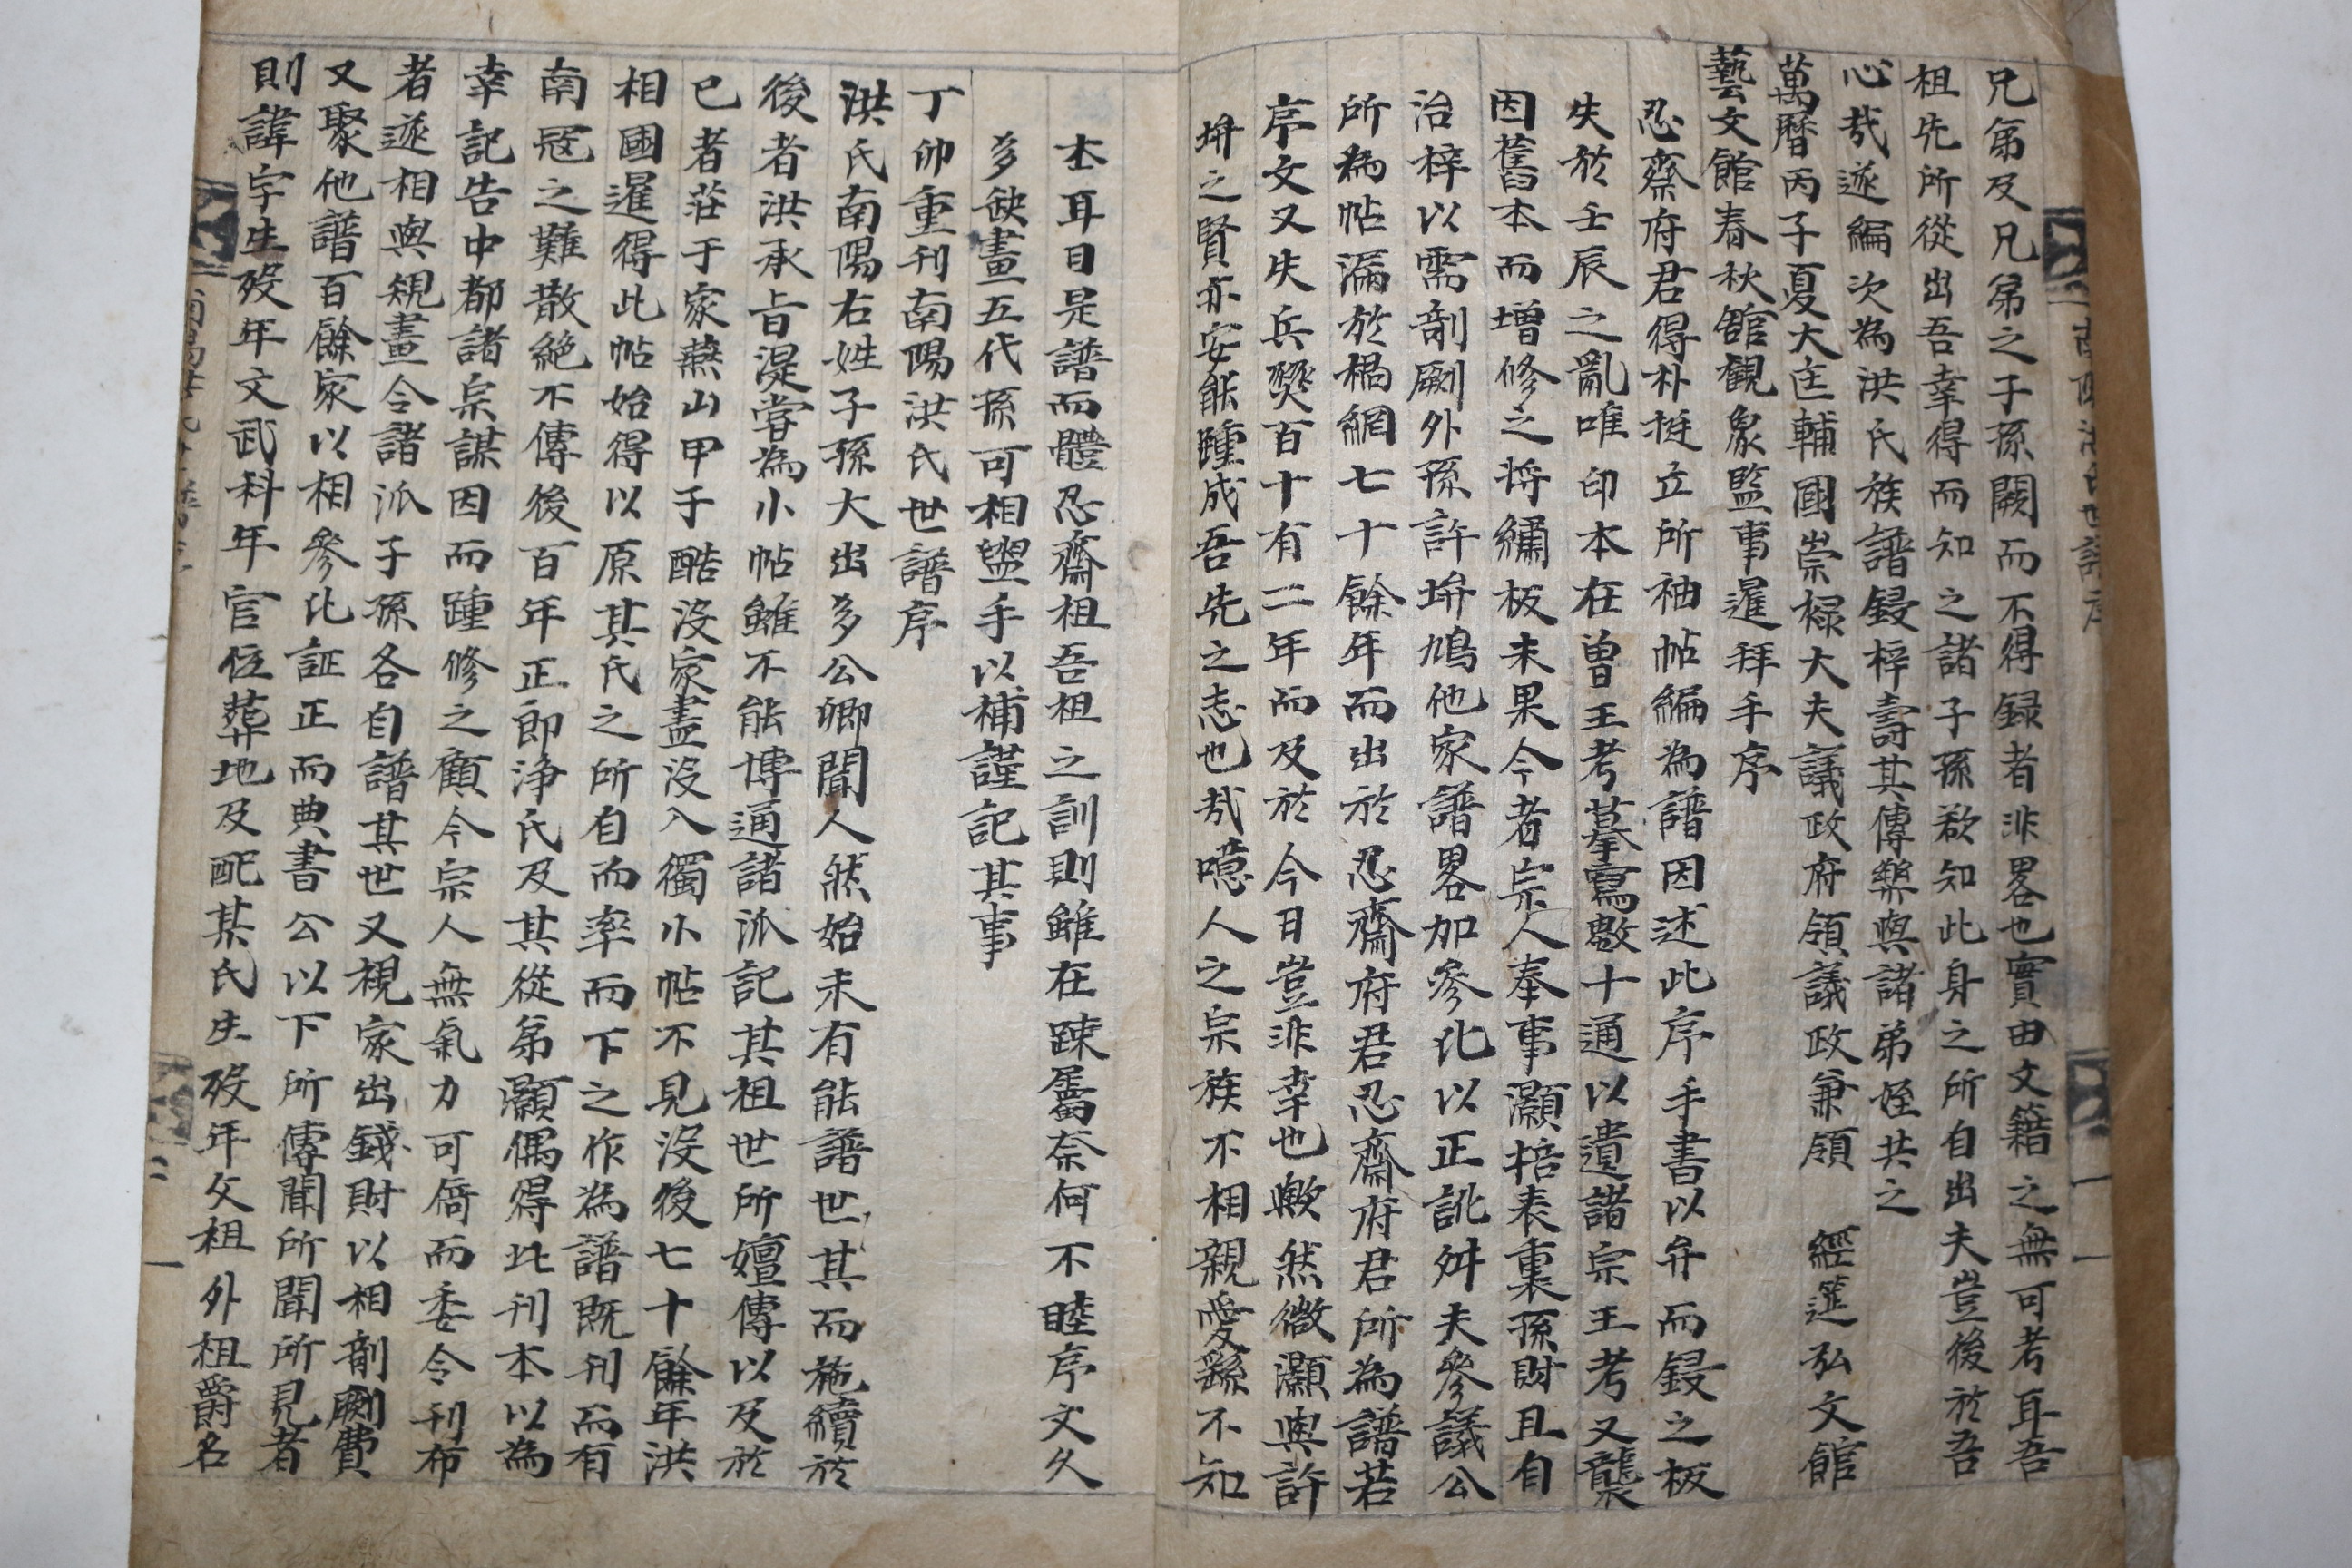 兄弟及兄弟之子孫闕而不得録者非畧也實由文籍之無可考耳吾
祖先所從出吾幸得而知之諸子孫欲知此身之所自出夫豈後於吾
心哉遂編次為洪氏族譜鋟梓壽其傳槩與諸弟姪共之
萬曆丙子夏大匡輔國崇祿大夫議政府領議政兼領 經筵弘文館
藝文館春秋館觀象監事暹拜手序
忍齋府君得朴挺立所袖帖編為譜因述此序手書以弁而鋟之板
失於壬辰之亂唯印本在曽王考摹寫數十通以遺諸宗王考又襲
因舊本而增修之将繡板未果今者宗人奉事灝掊表裏孫財且自
治梓以需剞劂外孫許垪鳩他家譜畧加參化以正訛舛夫參議公
所為帖漏於榻綱七十餘年而出於忍齋府君忍齋府君所為譜若
序文又失兵燹百十有二年而及於今日豈非幸也歟然微灝與許
垪之賢亦安能踵成吾先之志也哉噫人之宗族不相親愛繇不知
本耳目是譜而體忍齋祖吾祖之訓則雖在踈屬奈何不睦序文久
多缺畫五代孫可相盥手以補謹記其事
丁卯重刊南陽洪氏世譜序
洪氏南陽右姓子孫大出多公卿聞人然始未有能譜世其而施續於
後者洪承旨湜嘗為小帖雖不能博通諸派記其祖世所嬗傳以及於
已者莊于家燕山甲子酷沒家盡沒入獨小帖不見沒後七十餘年洪
相國暹得此帖始得以原其氏之所自而率而下之作為譜既刊而有
南冦之難散絶不傳後百年正郎淨氏及其從弟灝偶得此刊本以為
幸記告中都諸宗謀因而踵修之顧今宗人無氣力可脩而委令刊布
者遂相與規畫令諸派子孫各自譜其世又視家出錢財以相剞劂費
又聚他譜百餘家以相參比証正而典書公以下所傳聞所聞所見者
則諱字生歿年文武科年官位葬地及配某氏生歿年父祖外祖爵名